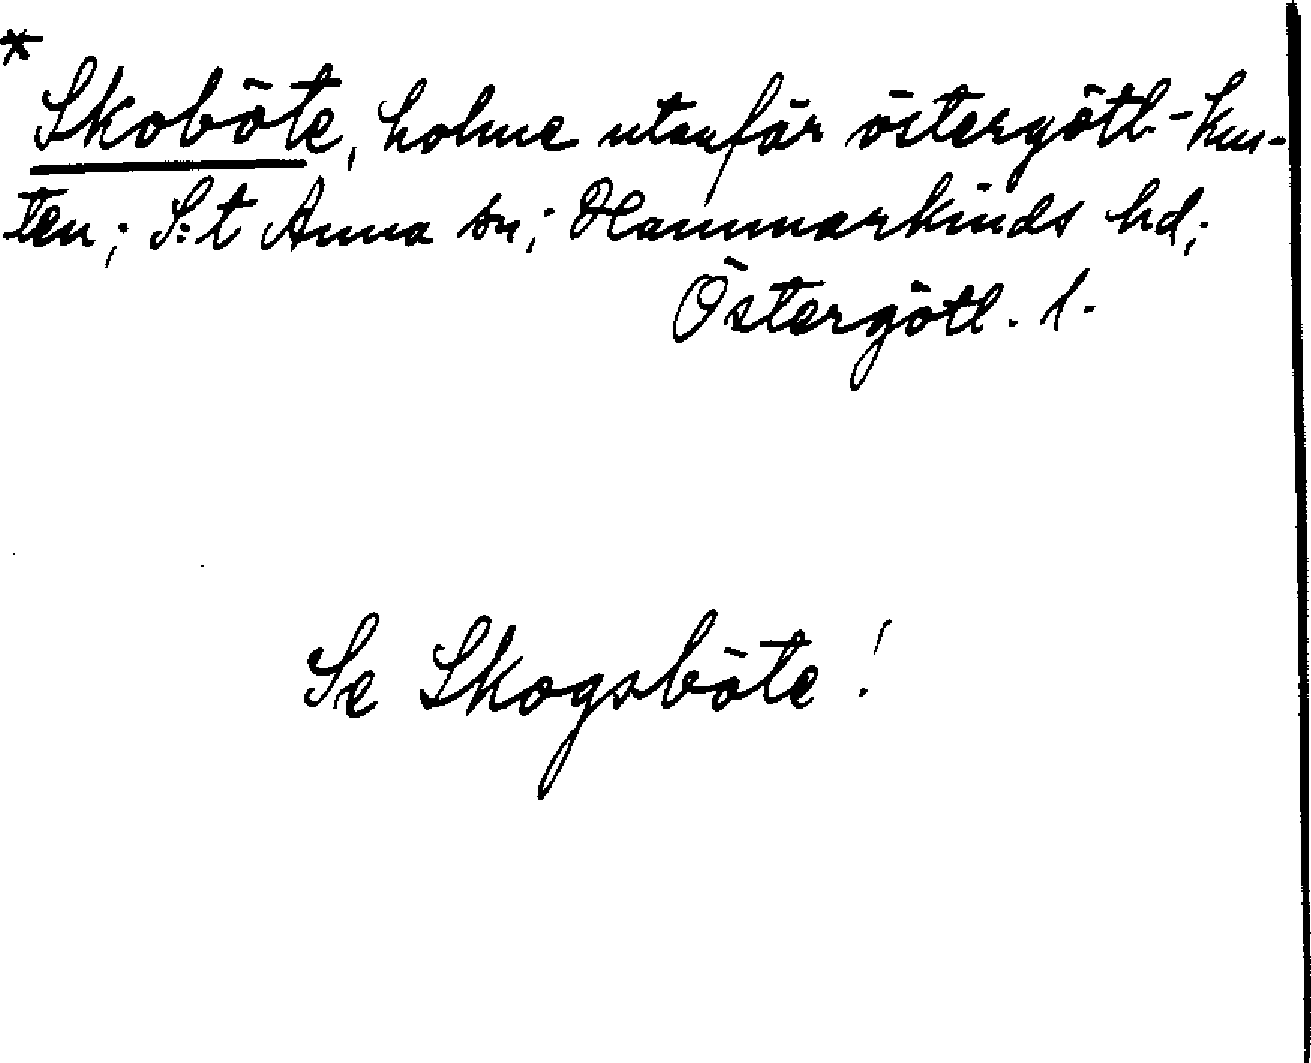 * Skoböte, holme utanför östergötl-kus-
ten; S:t Anna sn; Hammarkinds hd;
Östergötl. l.
Se Skogsböte!